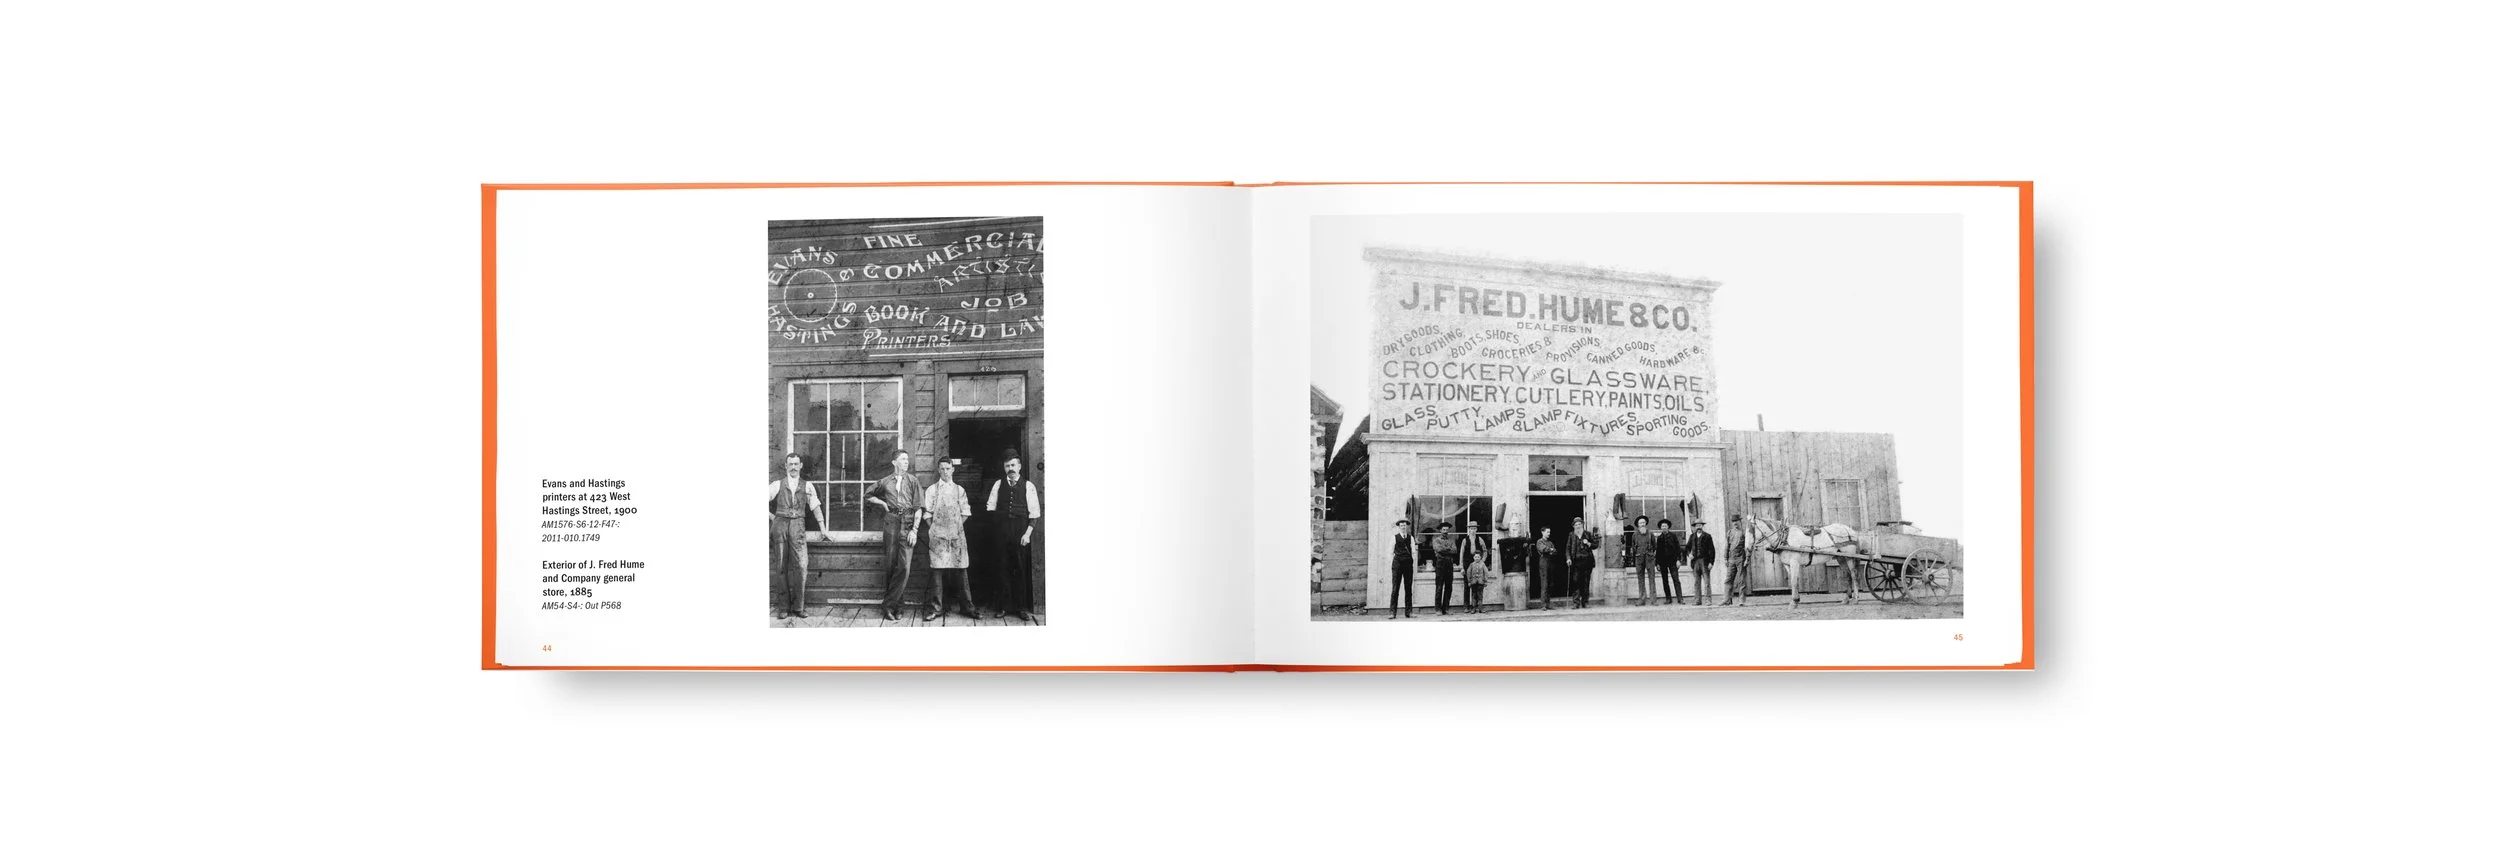 EVANS & HASTINGS
FINE
COMMERCIAL
ARTISTI
JOB
BOOK AND LAW
PRINTERS
J. FRED. HUME & CO.
DEALERS IN
DRY GOODS, CLOTHING, BOOTS, SHOES, GROCERIES & PROVISIONS, CANNED GOODS, HARDWARE &c
CROCKERY AND GLASSWARE,
STATIONERY, CUTLERY, PAINTS, OILS,
GLASS, PUTTY, LAMPS & LAMP FIXTURES, SPORTING GOODS.
Evans and Hastings
printers at 423 West
Hastings Street, 1900
AM1576-S6-12-F47-:
2011-010.1749
Exterior of J. Fred Hume
and Company general
store, 1885
AM54-S4-: Out P568
44
45